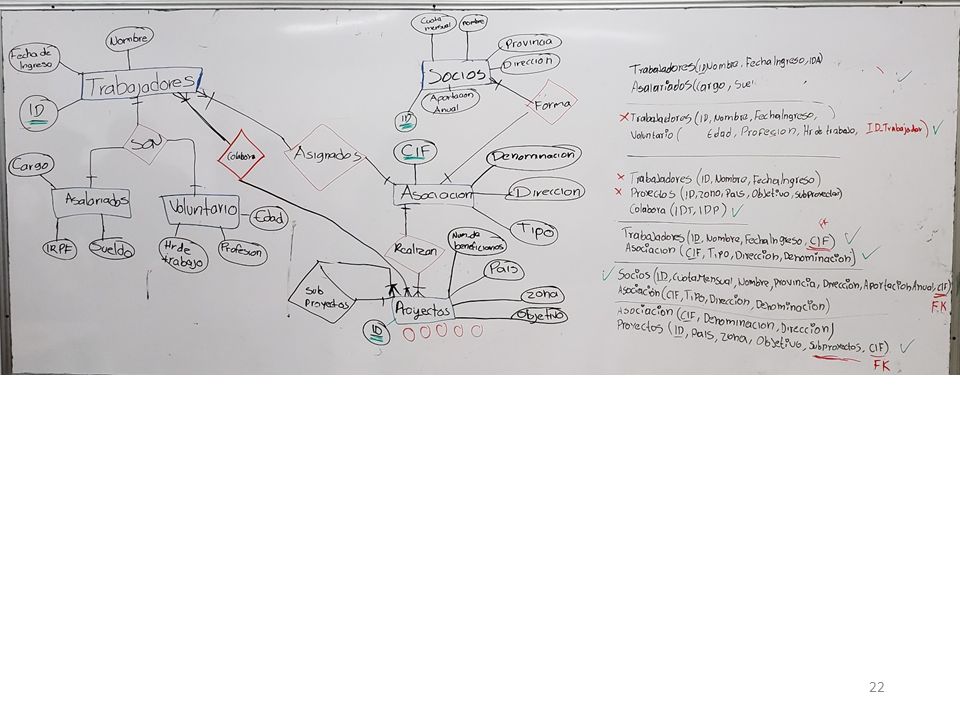 Fecha de
Ingreso
Nombre
Trabajadores
ID
Son
Cargo
Asalariados
IRPF
Sueldo
Voluntario
Edad
Hr de
trabajo
Profesion
Colabora
Asignados
Cuota
mensual
Nombre
Provincia
Direccion
Socios
Aportacion
Anual
ID
Forma
CIF
Asociacion
Denominacion
Direccion
Tipo
Realizan
Num.de
beneficiarios
País
Zona
Objetivo
Sub
Proyectos
Proyectos
ID
Trabajadores (ID, Nombra, Fecha Ingreso, IDA)
Asalariados (Cargo, Suel
x Trabajadores (ID, Nombra, Fecha Ingreso, )
Voluntario ( Edad, Profesion, Hr de trabajo, ID_Trabajador) ✓
x Trabajadores (ID, Nombra, Fecha Ingreso)
x Proyectos (ID, Zona, País, Objetivo, subproyectos)
Colabora (IDT, IDP) ✓
Trabajadores (ID, Nombre, Fecha Ingreso, CIF) ✓
Asociacion (CIF, Tipo, Direccion, Denominacion) ✓
✓ Socios (ID, Cuota Mensual, Nombre, Provincia, Direccion, Aportacion Anual, CIF)
FK
Asociación (CIF, Tipo, Direccion, Denominacion)
Asociacion (CIF, Denominacion, Direccion)
Proyectos (ID, Pais, Zona, Objetivo, subproyectos, CIF) ✓
FK
22